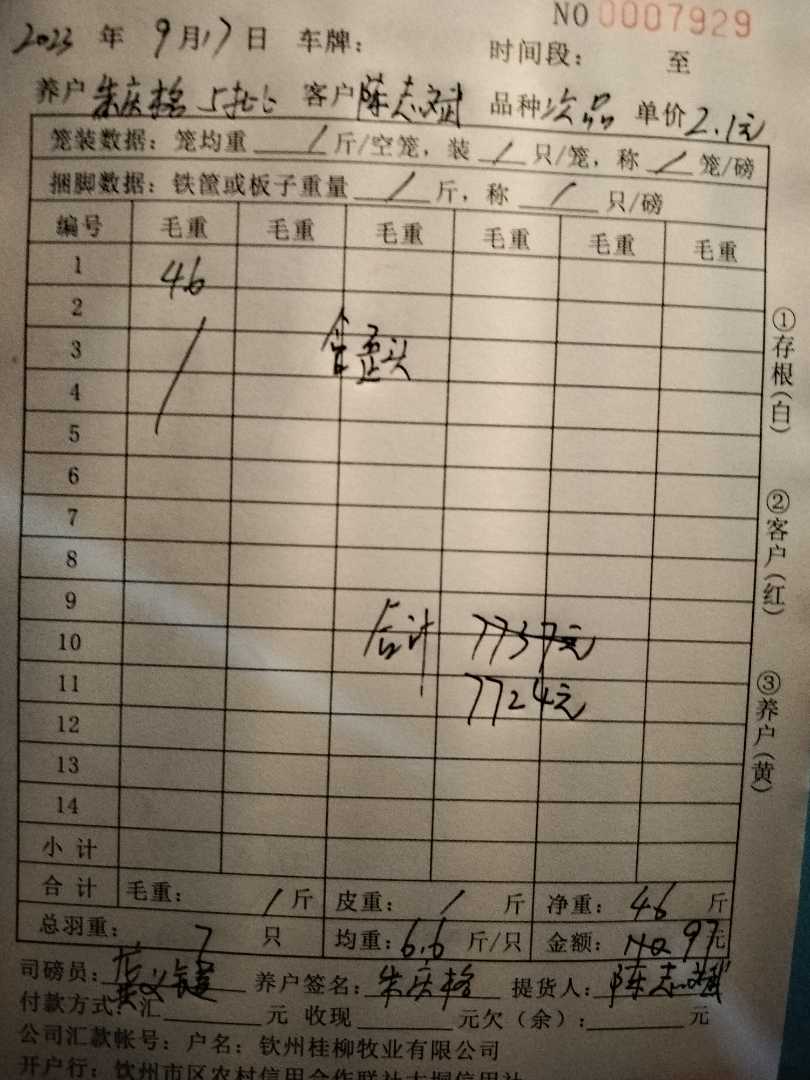 NO 0007929
2023 年 9月17日 车牌： 时间段： 至
养户 朱庆格 5批 客户 陈志斌 品种 次品 单价 2.1元
笼装数据：笼均重 / 斤/空笼，装 / 只/笼，称 / 笼/磅
捆脚数据：铁筐或板子重量 / 斤，称 / 只/磅
编号 毛重 毛重 毛重 毛重 毛重 毛重
1 46
2
3 含歪头
4
5
6
7
8
9
10 合计 7737元
11 7724元
12
13
14
小计
合计 毛重： / 斤 皮重： / 斤 净重： 46 斤
总羽重： 7 只 均重： 6.6 斤/只 金额： 97元
司磅员： 养户签名： 朱庆格 提货人： 陈志斌
付款方式：汇 元 收现 元欠（余）： 元
公司汇款帐号：户名：钦州桂柳牧业有限公司
开户行：钦州市区农村信用合作联社大垌信用社
①存根(白)
②客户(红)
③养户(黄)